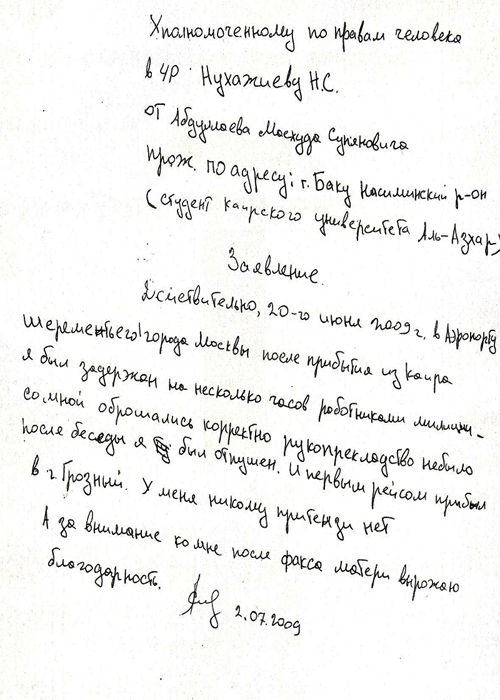 Уполномоченному по правам человека
в ЧР Нухажиеву Н.С.
от Абдуллаева Масхуда Супяновича
прож. по адресу: г. Баку Насиминский р-он
(студент каирского университета Аль-Азхар)
Заявление.
Действительно, 20-го июня 2009 г. в Аэропорту
Шереметьего города Москвы после прибытия из каира
я был задержан на несколько часов работниками милиции.
со мной оброшались корректно рукопрекладство небыло
после беседы я был отпушен. И первым рейсом прибыл
в г. Грозный. У меня никому притензи нет
А за внимание ко мне после факса матери вырожаю
благодорность.
2.07.2009